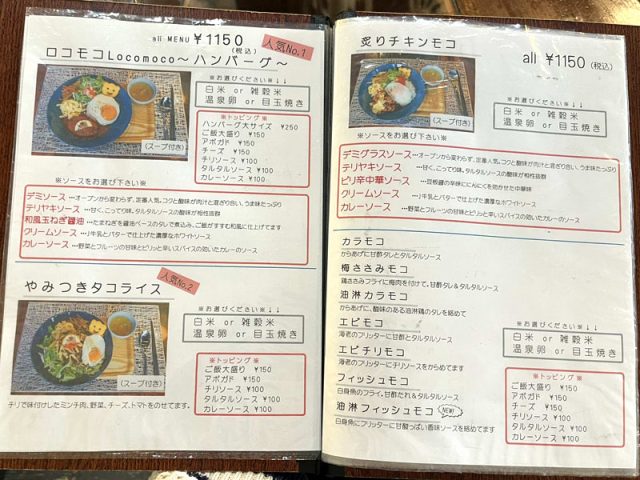 all MENU ¥1150
(税込)
人気No.1
ロコモコLocomoco～ハンバーグ～
※お選びください※↓↓
白米 or 雑穀米
温泉卵 or 目玉焼き
(スープ付き)
※トッピング※
ハンバーグ大サイズ ¥250
ご飯大盛り ¥150
アボガド ¥150
チーズ ¥150
チリソース ¥100
タルタルソース ¥100
カレーソース ¥100
※ソースをお選び下さい※
デミソース…オープンから変わらず、定番人気。コクと酸味が肉汁と混ざり合い、うま味たっぷり
テリヤキソース…甘く、こってり味。タルタルソースの酸味が相性抜群
和風玉ねぎ醤油…たまねぎを醤油ベースのタレで煮込み、ご飯がすすむ和風に仕上げてます
クリームソース…牛乳とバターで仕上げた濃厚なホワイトソース
カレーソース…野菜とフルーツの甘味とピリッと辛いスパイスの効いたカレーのソース
人気No.2
やみつきタコライス
※お選びください※↓↓
白米 or 雑穀米
温泉卵 or 目玉焼き
(スープ付き)
※トッピング※
ご飯大盛り ¥150
アボガド ¥150
チリソース ¥100
タルタルソース ¥100
カレーソース ¥100
チリで味付けしたミンチ肉、野菜、チーズ、トマトをのせてます。
炙りチキンモコ
all ¥1150(税込)
※お選びください※↓↓
白米 or 雑穀米
温泉卵 or 目玉焼き
(スープ付き)
※ソースをお選び下さい※
デミグラスソース…オープンから変わらず、定番人気。コクと酸味が肉汁と混ざり合い、うま味たっぷり
テリヤキソース…甘く、こってり味。タルタルソースの酸味が相性抜群
ピリ辛中華ソース…豆板醤の辛味ににんにくを効かせた中華味
クリームソース…牛乳とバターで仕上げた濃厚なホワイトソース
カレーソース…野菜とフルーツの甘味とピリッと辛いスパイスの効いたカレーのソース
カラモコ
からあげに甘酢タレとタルタルソース
梅ささみモコ
鶏ささみフライに梅肉を付けて、甘酢タレ&タルタルソース
油淋カラモコ
からあげに、酸味のある油淋鶏のタレを絡めて
エビモコ
海老のフリッターに甘酢とタルタルソース
エビチリモコ
海老のフリッターにチリソースをからめてます
フィッシュモコ
白身魚のフライ。甘酢だれ&タルタルソース
油淋フィッシュモコ NEW!
白身魚にフリッターに甘酸っぱい香味ソースを絡めてます
※お選びください※↓↓
白米 or 雑穀米
温泉卵 or 目玉焼き
※トッピング※
ご飯大盛り ¥150
アボガド ¥150
チーズ ¥150
チリソース ¥100
タルタルソース ¥100
カレーソース ¥100